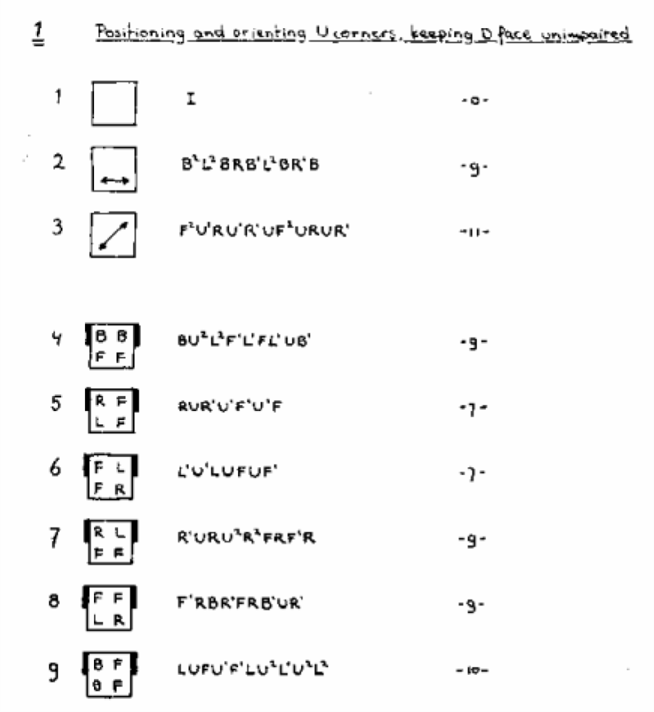 1 Positioning and orienting U corners, keeping D face unimpaired
1 I -0-
2 B²L²BRB'L²BR'B -9-
3 F²U'RU'R'UF²URUR' -11-
4 B B BU²L²F'L'FL'UB' -9-
F F
5 R F RUR'U'F'U'F -7-
L F
6 F L L'U'LUFUF' -7-
F R
7 R L R'URU²R²FRF'R -9-
F F
8 F F F'RBR'FRB'UR' -9-
L R
9 B F LUFU'F'LU²L'U²L² -10-
B F